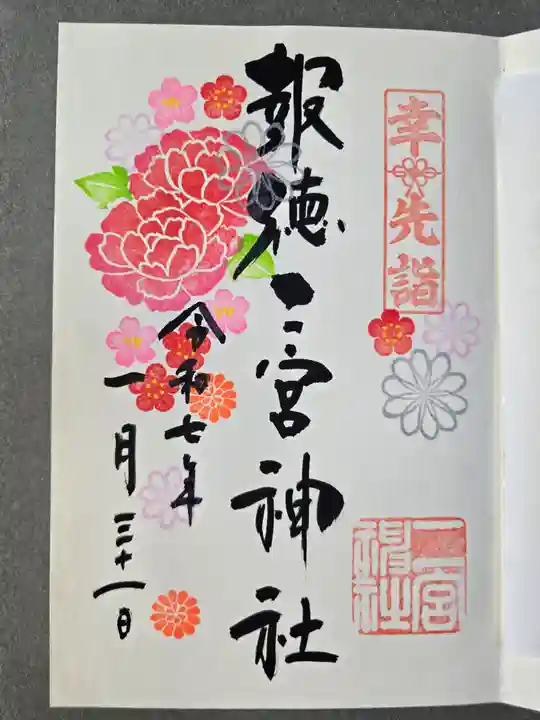 幸先詣
報徳二宮神社
二宮神社
令和七年
一月三十一日